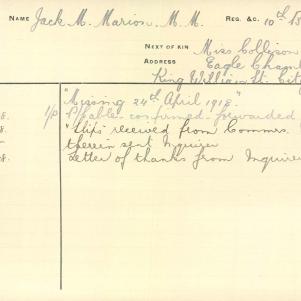 NAME Jack M. Marion. M.M. REG. &C. 10th
NEXT OF KIN Miss Collison
ADDRESS Eagle Chamb
King William St. City
"Missing 24th April 1918."
8. 1/p Cable confirmed forwarded
8. "Slips received from Commrs.
therein sent Inquirer
8. Letter of thanks from Inquirer